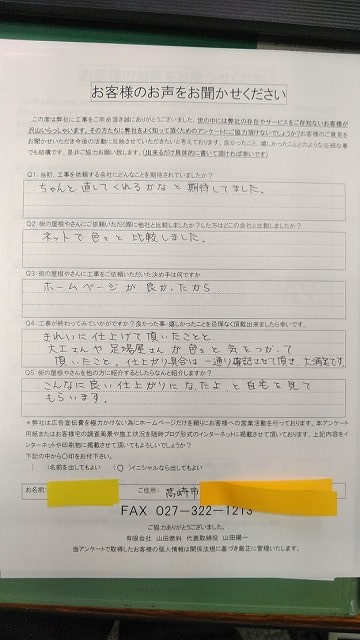 お客様のお声をお聞かせください
この度は弊社に工事をご用命頂き誠にありがとうございました。世の中には弊社の存在やサービスをご存知ないお客様が
沢山いらっしゃいます。その方たちに弊社をよく知って頂くためのアンケートにご協力頂けないでしょうか?お客様のご意見を
お聞かせいただき今後の活動に反映させていただきたいと考えております。良かったこと、嬉しかったことどのような些細な事
でも結構です。是非ご協力お願い致します。(出来るだけ具体的に書いて頂ければ幸いです)
Q1:当初、工事を依頼する会社にどんなことを期待されていましたか?
ちゃんと直してくれるかなと期待してました。
Q2:街の屋根やさんにご依頼いただく際に他社と比較しましたか?した方はどこの会社と比較しましたか?
ネットで色々と比較しました。
Q3:街の屋根やさんに工事をご依頼いただいた決め手は何ですか
ホームページが良かったから
Q4:工事が終わってみていかがですか?良かった事・嬉しかったことを忌憚なく頂戴出来ましたら幸いです。
きれいに仕上げて頂いたことと
大工さんや足場屋さんが色々と気をつかって
頂いたこと。仕上がり具合は一通り確認させて頂き、大満足です。
Q5:街の屋根やさんを他の方に紹介するとしたらなんと紹介しますか?
こんなに良い仕上がりになったよ、と自宅を見て
もらいます。
*弊社は広告宣伝費を極力かけない為にホームページだけを頼りにお客様への営業活動を行っております。本アンケート
用紙またはお客様宅の調査風景や施工状況を随時ブログ形式のインターネットに掲載させて頂いております。上記内容をイ
ンターネットや印刷物に掲載させて頂いてもよろしいでしょうか?
下記の中から〇印をお付下さい。
( )名前を出してもよい ( 〇 )イニシャルなら出してもよい
お名前: ご住所: 高崎市
FAX 027-322-1213
ご協力ありがとうございました。
有限会社 山田燃料 代表取締役 山田陽一
当アンケートで取得したお客様の個人情報は関係法規に基づき厳正に管理いたします。